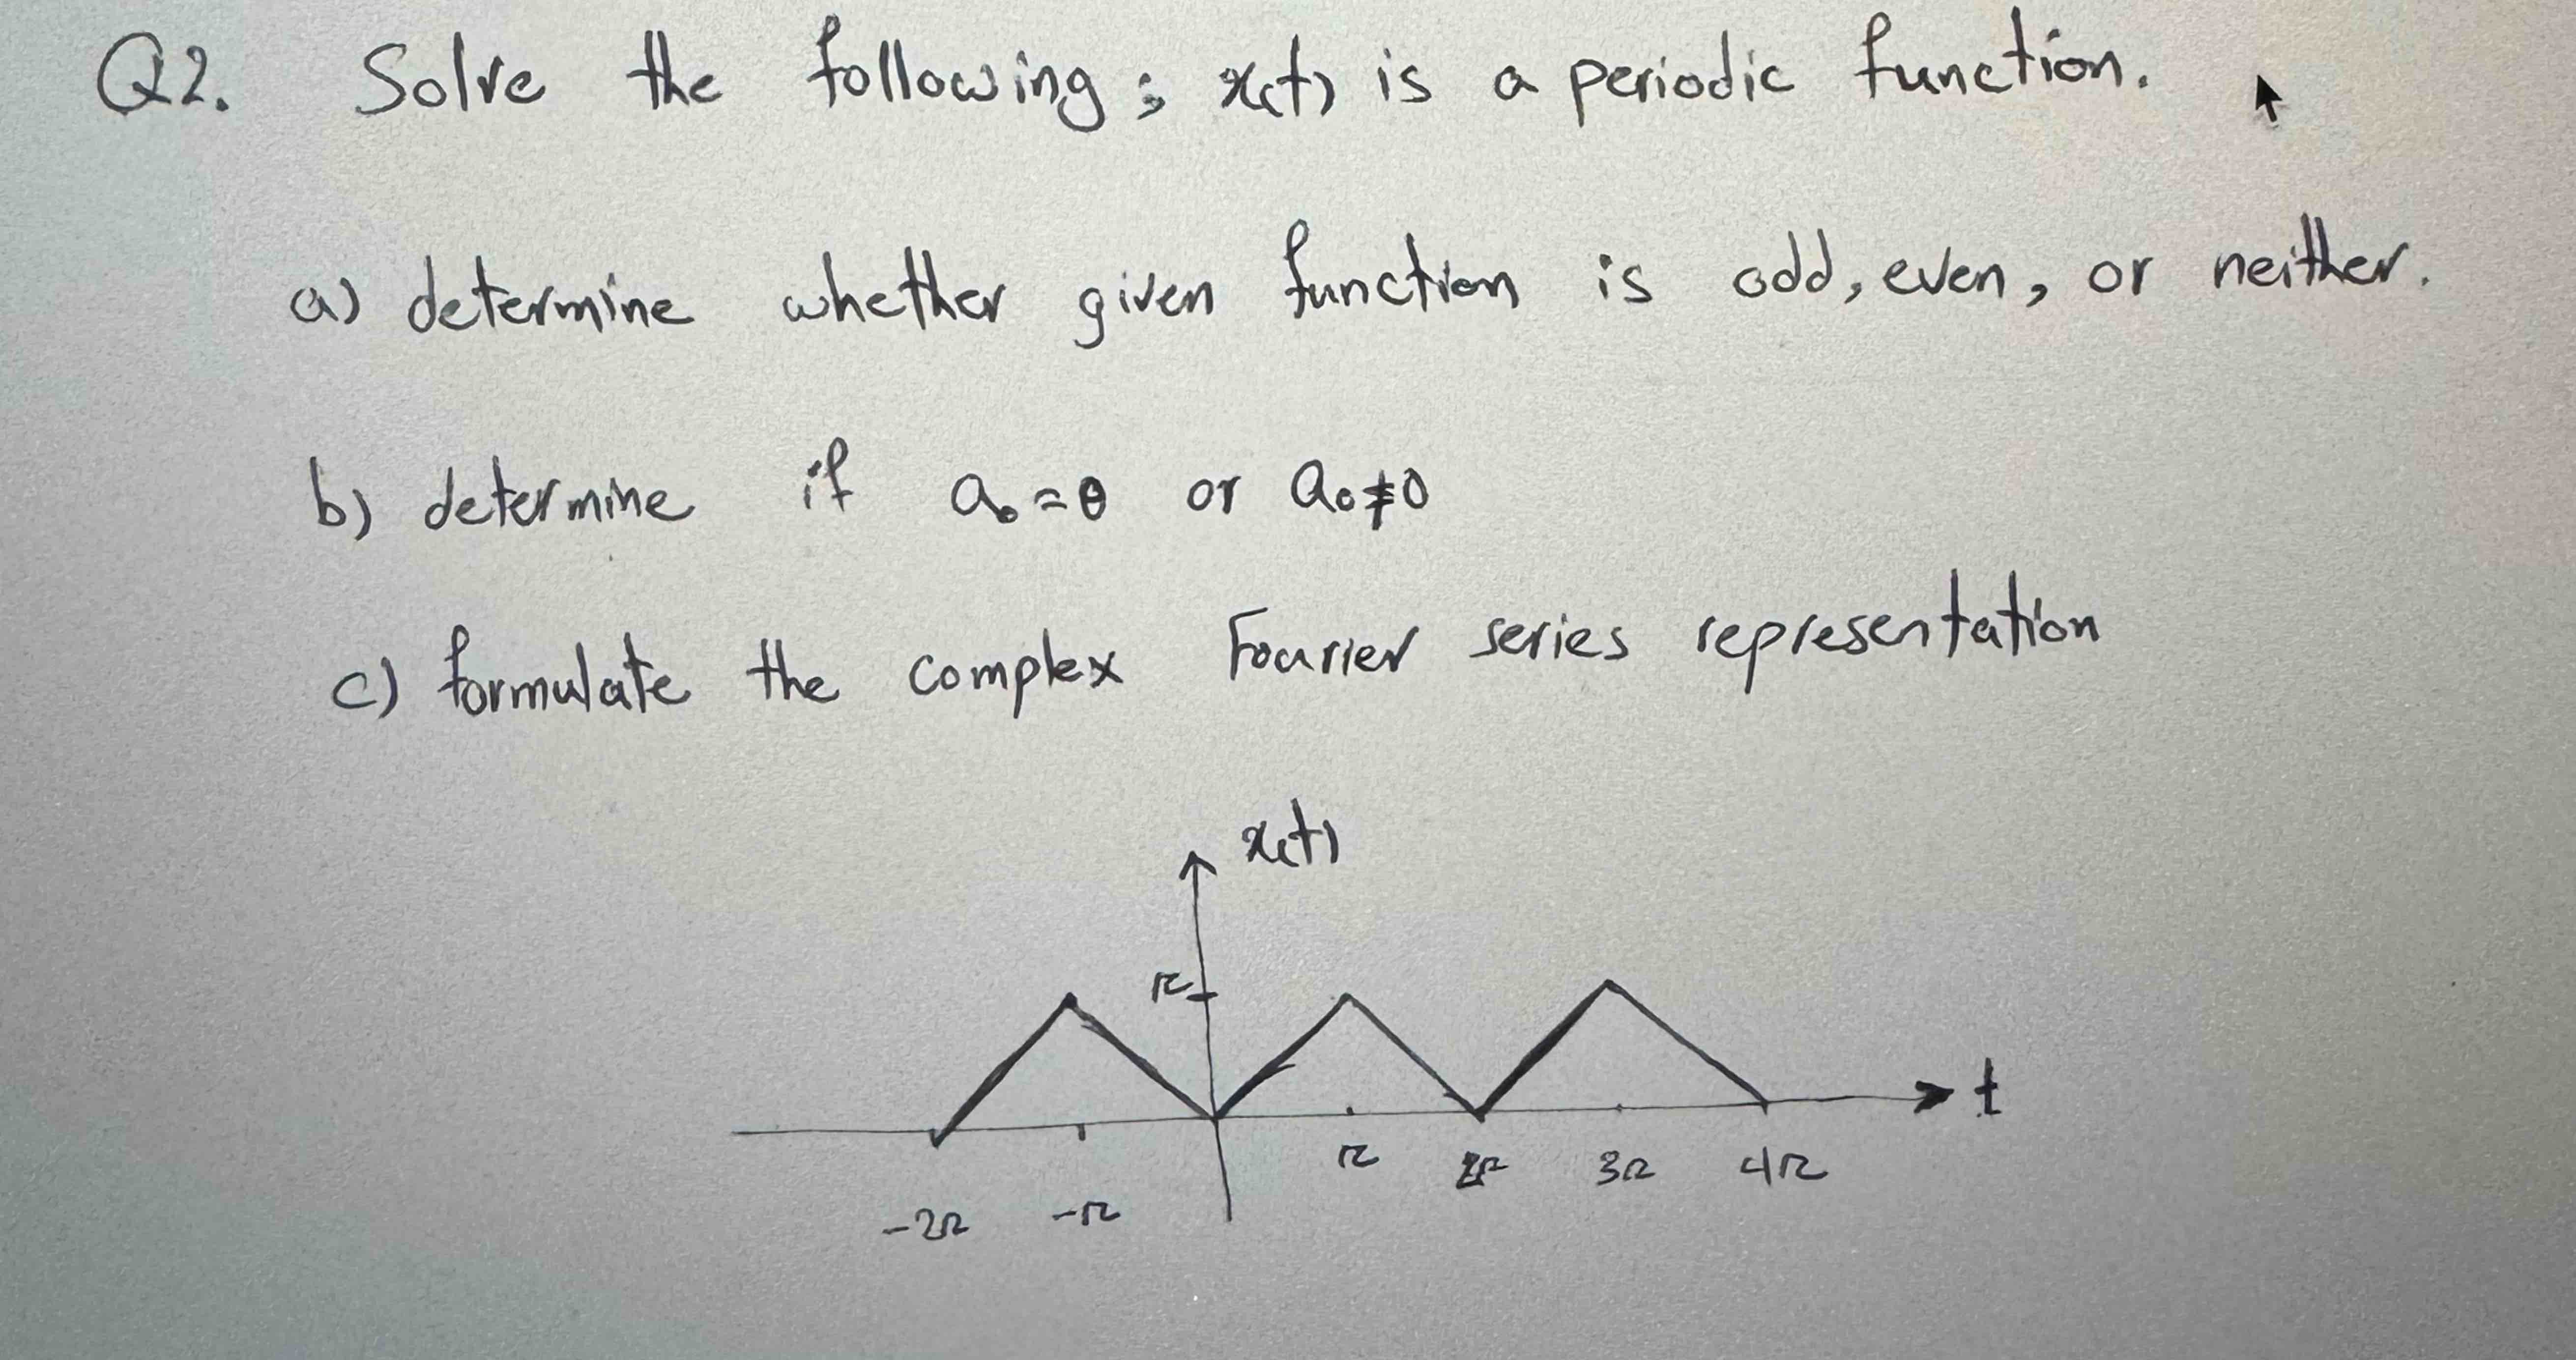 Q2. Solve the following; x(t) is a periodic function.
a) determine whether given function is odd, even, or neither.
b) determine if a₀ = 0 or a₀ ≠ 0
c) formulate the complex Fourier series representation
x(t)
π
t
π 2π 3π 4π
-2π -π